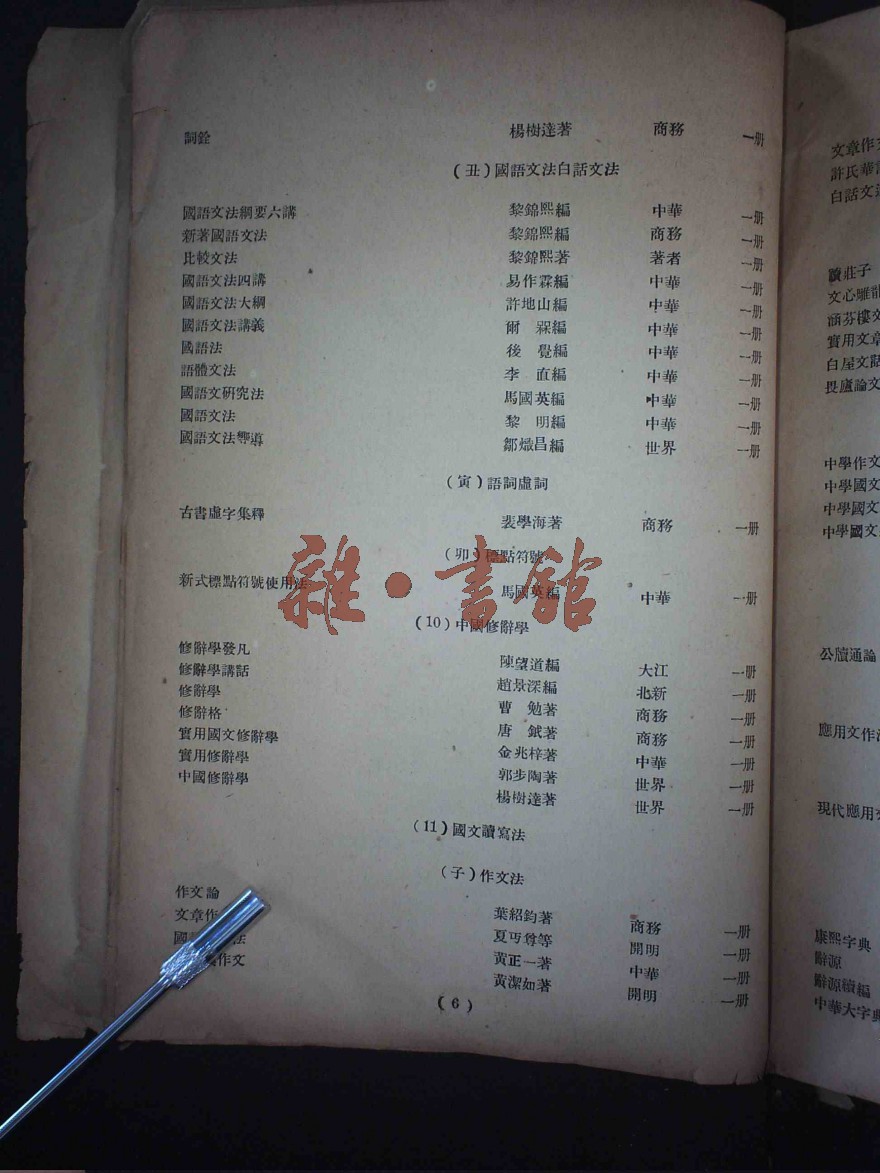 詞詮 楊樹達著 商務 一册
(丑)國語文法白話文法
國語文法綱要六講 黎錦熙編 中華 一册
新著國語文法 黎錦熙編 商務 一册
比較文法 黎錦熙著 著者 一册
國語文法四講 易作霖編 中華 一册
國語文法大綱 許地山編 中華 一册
國語文法講義 爾 槑編 中華 一册
國語法 後 覺編 中華 一册
語體文法 李 直編 中華 一册
國語文研究法 馬國英編 中華 一册
國語文法 黎 明編 中華 一册
國語文法嚮導 鄒熾昌編 世界 一册
(寅)語詞虛詞
古書虛字集釋 裴學海著 商務 一册
(卯)標點符號
新式標點符號使用法 馬國英編 中華 一册
(10)中國修辭學
修辭學發凡 陳望道編 大江 一册
修辭學講話 趙景深編 北新 一册
修辭學 曹 勉著 商務 一册
修辭格 唐 鉞著 商務 一册
實用國文修辭學 金兆梓著 中華 一册
實用修辭學 郭步陶著 世界 一册
中國修辭學 楊樹達著 世界 一册
(11)國文讀寫法
(子)作文法
作文論 葉紹鈞著 商務 一册
文章作 夏丏尊等 開明 一册
國 法 黃正一著 中華 一册
作文 黃潔如著 開明 一册
(6)
雜·書館
文章作
許氏
白話文
讀莊子
文心雕龍
涵芬樓文
實用文章
白屋文話
畏廬論文
中學作文
中學國文
中學國文
中學國文
公牘通論
應用文作法
現代應用文
康熙字典
辭源
辭源續編
中華大字典